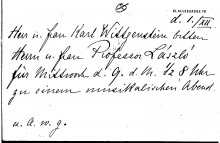 IV. ALLEEGASSE 16
d. 1./XII
Herr u. Frau Karl Wittgenstein bitten
Herrn u. Frau Professor László
für Mittwoch d. 9. d. M. ½8 Uhr
zu einem musikalischen Abend.
u. A. w. g.